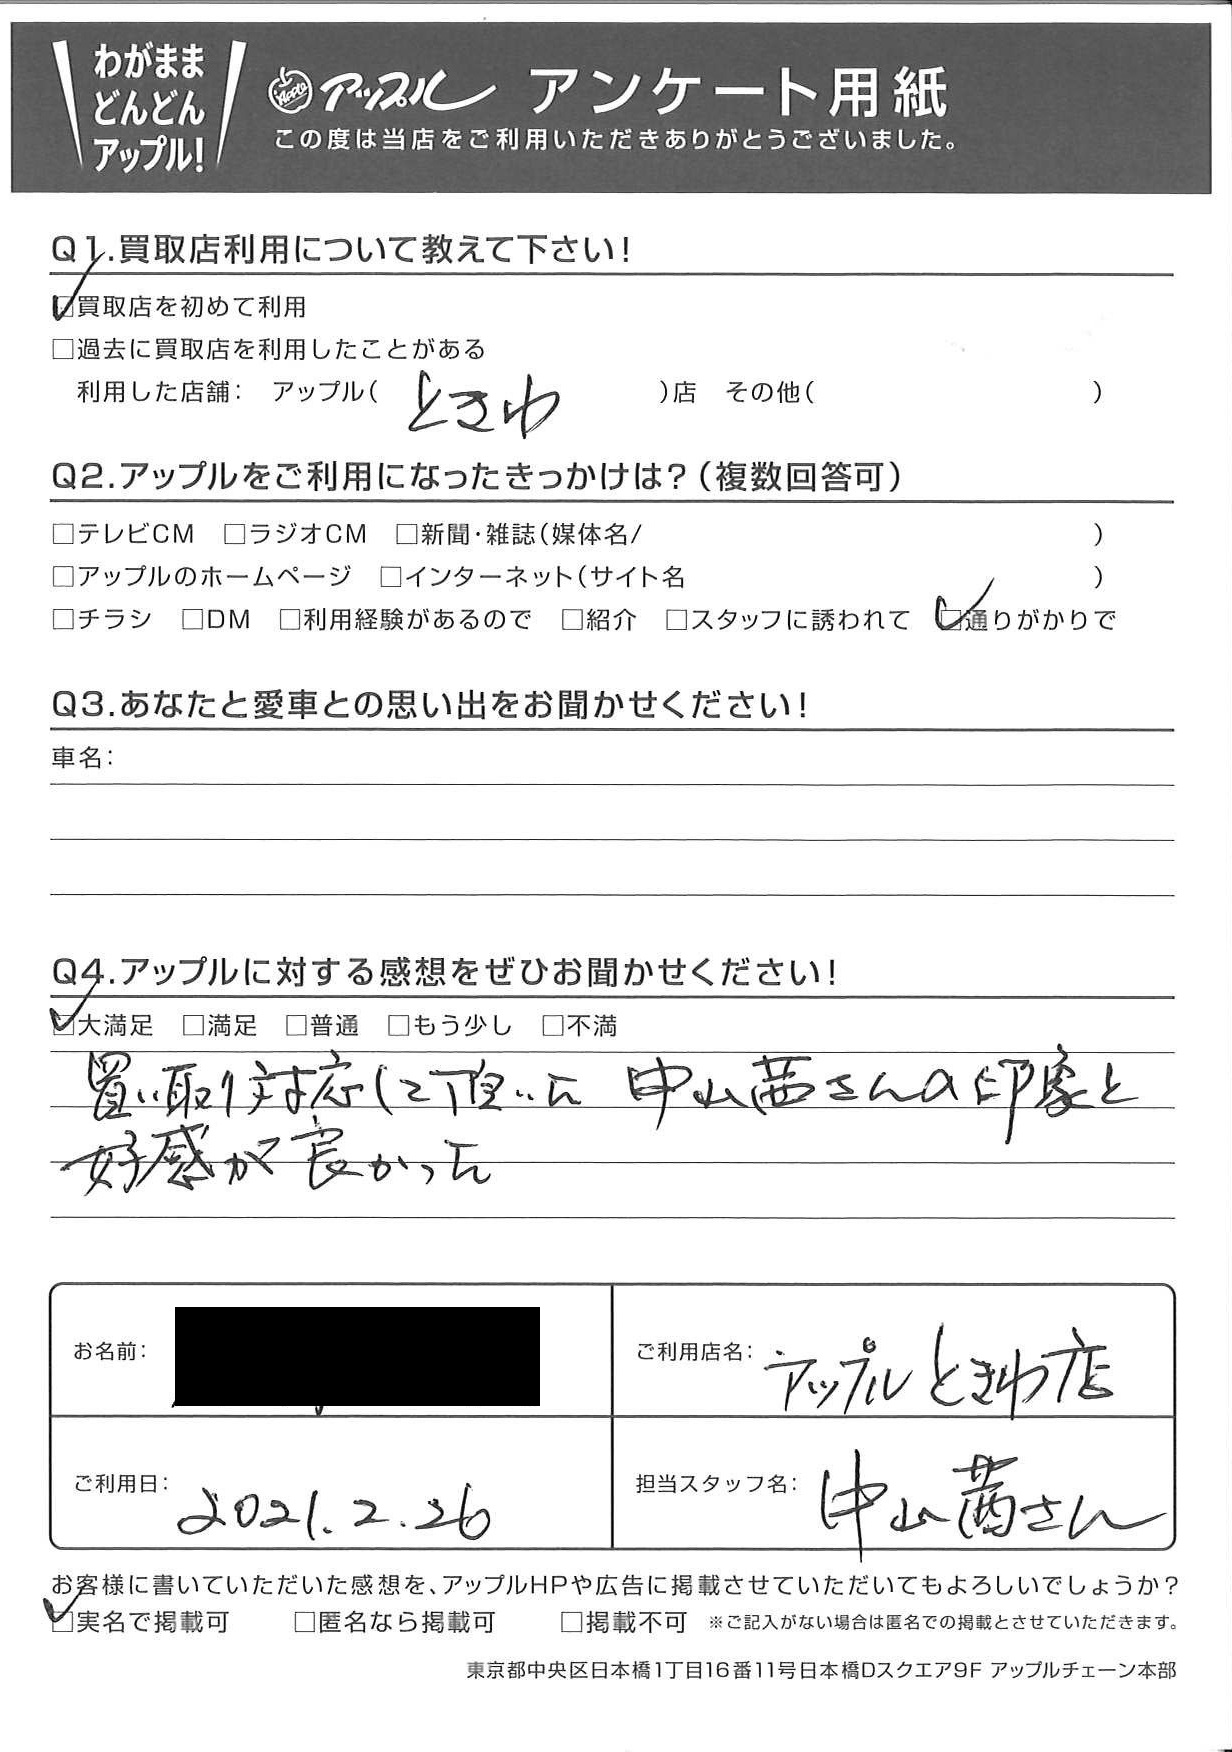 わがまま
どんどん
アップル!
Apple アップル アンケート用紙
この度は当店をご利用いただきありがとうございました。
Q1.買取店利用について教えて下さい!
☑買取店を初めて利用
□過去に買取店を利用したことがある
利用した店舗: アップル( ときわ )店 その他( )
Q2.アップルをご利用になったきっかけは?(複数回答可)
□テレビCM □ラジオCM □新聞・雑誌(媒体名/ )
□アップルのホームページ □インターネット(サイト名 )
□チラシ □DM □利用経験があるので □紹介 □スタッフに誘われて ☑通りがかりで
Q3.あなたと愛車との思い出をお聞かせください!
車名:
Q4.アップルに対する感想をぜひお聞かせください!
☑大満足 □満足 □普通 □もう少し □不満
買い取り対応して頂いた 中山茜さんの印象と
好感が良かった
お名前:
ご利用店名: アップルときわ店
ご利用日: 2021.2.26
担当スタッフ名: 中山茜さん
お客様に書いていただいた感想を、アップルHPや広告に掲載させていただいてもよろしいでしょうか?
☑実名で掲載可 □匿名なら掲載可 □掲載不可 ※ご記入がない場合は匿名での掲載とさせていただきます。
東京都中央区日本橋1丁目16番11号日本橋Dスクエア9F アップルチェーン本部